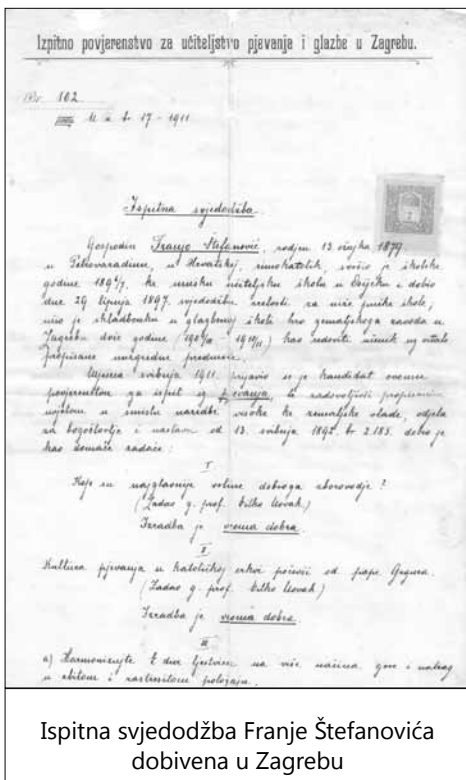 Izpitno povjerenstvo za učiteljstvo pjevanja i glazbe u Zagrebu.
102
17 - 1911
Ispitna svjedodžba
Gospodin Franjo Štefanović, rodjen 13. ožujka 1879
u Petrovaradinu, u Hrvatskoj, rimokatolik, svršio je školske
godine 189 6/7. kr. mušku učiteljsku školu u Osijeku i dobio
dne 29 lipnja 1897. svjedodžbu zrelosti za niže pučke škole,
učio je skladbouku u glazbenoj školi hrv. zemaljskoga zavoda u
Zagrebu dvije godine kao redoviti učenik uz ostale
propisane nuzgredne predmete.
Mjeseca svibnja 1911. prijavio se je kandidat ovomu
povjerenstvu za ispit iz pjevanja, te zadovoljivši propisanim
uvjetom u smislu naredbe visoke kr. zemaljske vlade, odjela
za bogoštovlje i nastavu od 13. svibnja 1892. br. 2.185. dobio je
kao domaće zadaće:
I
Koje su najglavnije vrline dobroga zborovodje?
(Zadao g. prof. Vilko Novak)
Izradba je vroma dobra.
II
Kultura pjevanja u katoličkoj crkvi počevši od pape Grgura.
(Zadao g. prof. Vilko Novak)
Izradba je vroma dobra.
III
a) Harmonizujte E dur ljestvicu na više načina gore i
u zbitom i rastresitom položaju.
Ispitna svjedodžba Franje Štefanovića
dobivena u Zagrebu